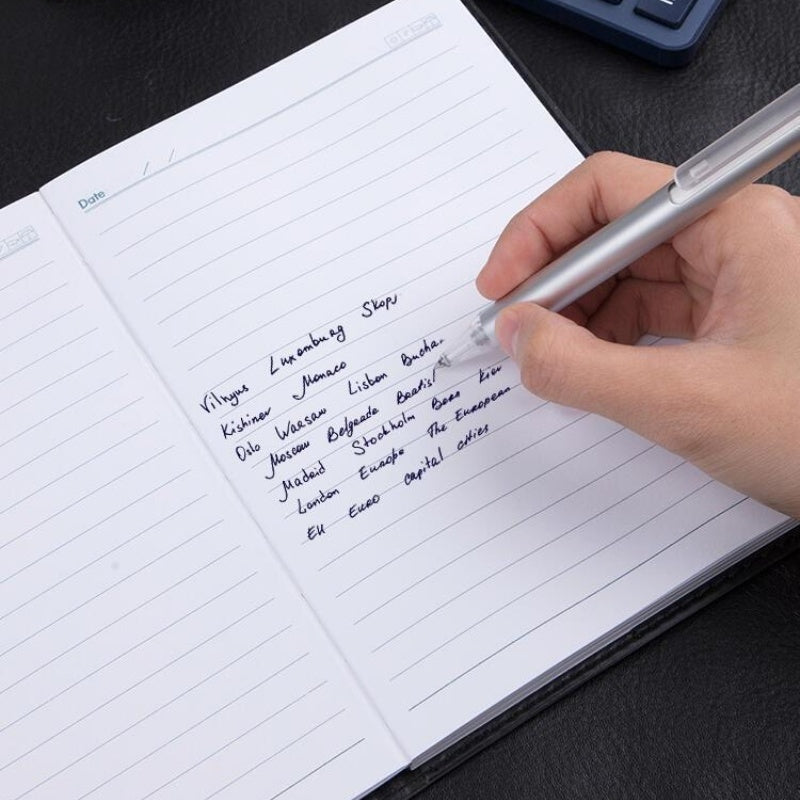 Date / /
Vilnyus Luxemburg Skopj
Kishinev Monaco
Oslo Warsaw Lisbon Buchar
Moscow Belgrade Bratisl
Madrid Stockholm Bern Kiev
London Europe The European
EU Euro capital cities